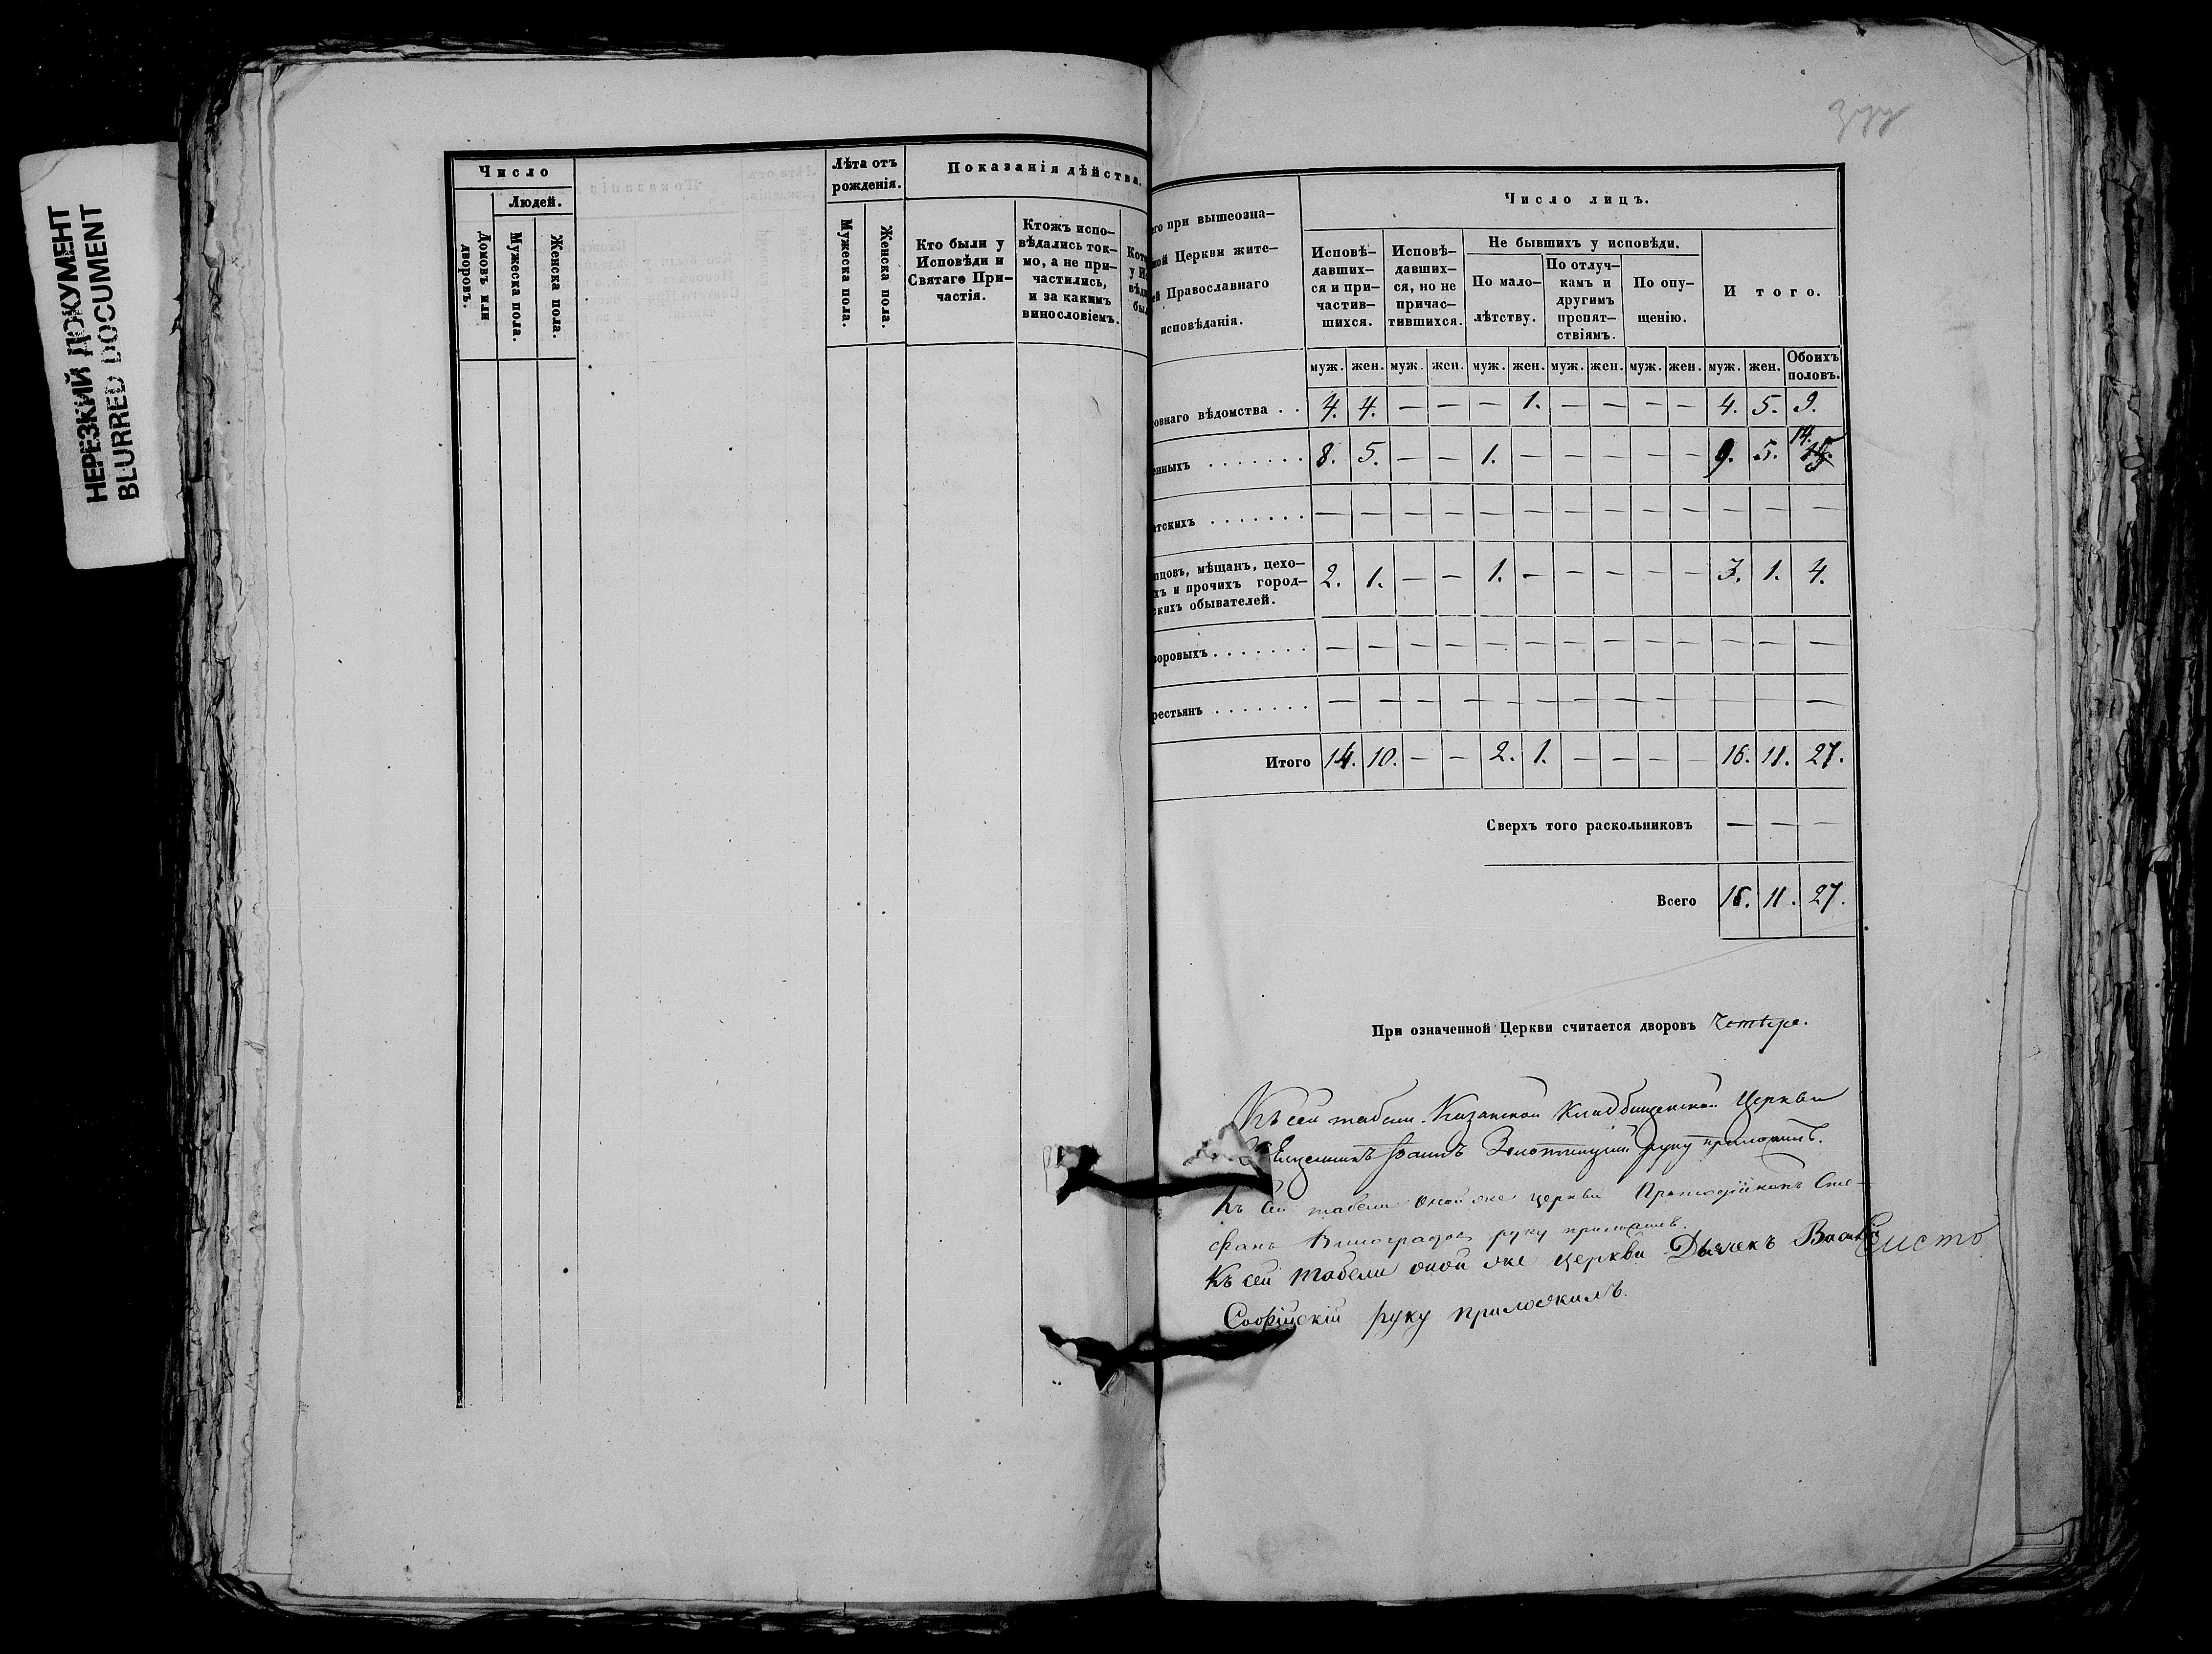 НЕРЕЗКИЙ ДОКУМЕНТ
BLURRED DOCUMENT
Число
Людей.
Домовъ или дворовъ.
Мужеска пола.
Женска пола.
Лѣта отъ
рожденія.
Мужеска пола.
Женска пола.
Показанія дѣйства.
Кто были у
Исповѣди и
Святаго При-
частія.
Ктожъ испо-
вѣдались ток-
мо, а не при-
частились,
и за какимъ
винословіемъ.
его при вышеозна-
ной Церкви жите-
ей Православнаго
исповѣданія.
Число лицъ.
Исповѣ-
давших-
ся и при-
частив-
шихся.
Исповѣ-
давших-
ся, но не
причас-
тившихся.
Не бывшихъ у исповѣди.
По мало-
лѣтству.
По отлуч-
камъ и
другимъ
препят-
ствіямъ.
По опу-
щенію.
И того.
муж. жен. муж. жен. муж. жен. муж. жен. муж. жен. муж. жен. Обоихъ половъ.
овнаго вѣдомства . . 4. 4. — — — 1. — — — — 4. 5. 9.
енныхъ . . . . . . . 8. 5. — — 1. — — — — — 9. 5. 14.
тскихъ . . . . . . . — — — — — — — — — — — — —
пцовъ, мѣщанъ, цехо-
хъ и прочихъ город-
скихъ обывателей. 2. 1. — — 1. — — — — — 3. 1. 4.
оровыхъ . . . . . . . — — — — — — — — — — — — —
рестьянъ . . . . . . . — — — — — — — — — — — — —
Итого 14. 10. — — 2. 1. — — — — 16. 11. 27.
Сверхъ того раскольниковъ — — —
Всего 16. 11. 27.
При означенной Церкви считается дворовъ четыре.
Къ сей табели Казанской Кладбищенской Церкви
Священникъ Іоаннъ Золотницкій руку приложилъ.
Къ сей табели оной же церкви Протодіаконъ Сте-
фанъ Виноградов руку приложилъ.
Къ сей табели оной же церкви Дьячекъ Василій
Софійскій руку приложилъ.